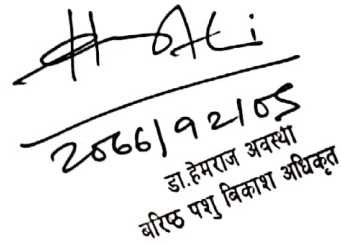 2066/12/05
डा.हेमराज अवस्था
बरिष्ठ पशु बिकाश अधिकृत